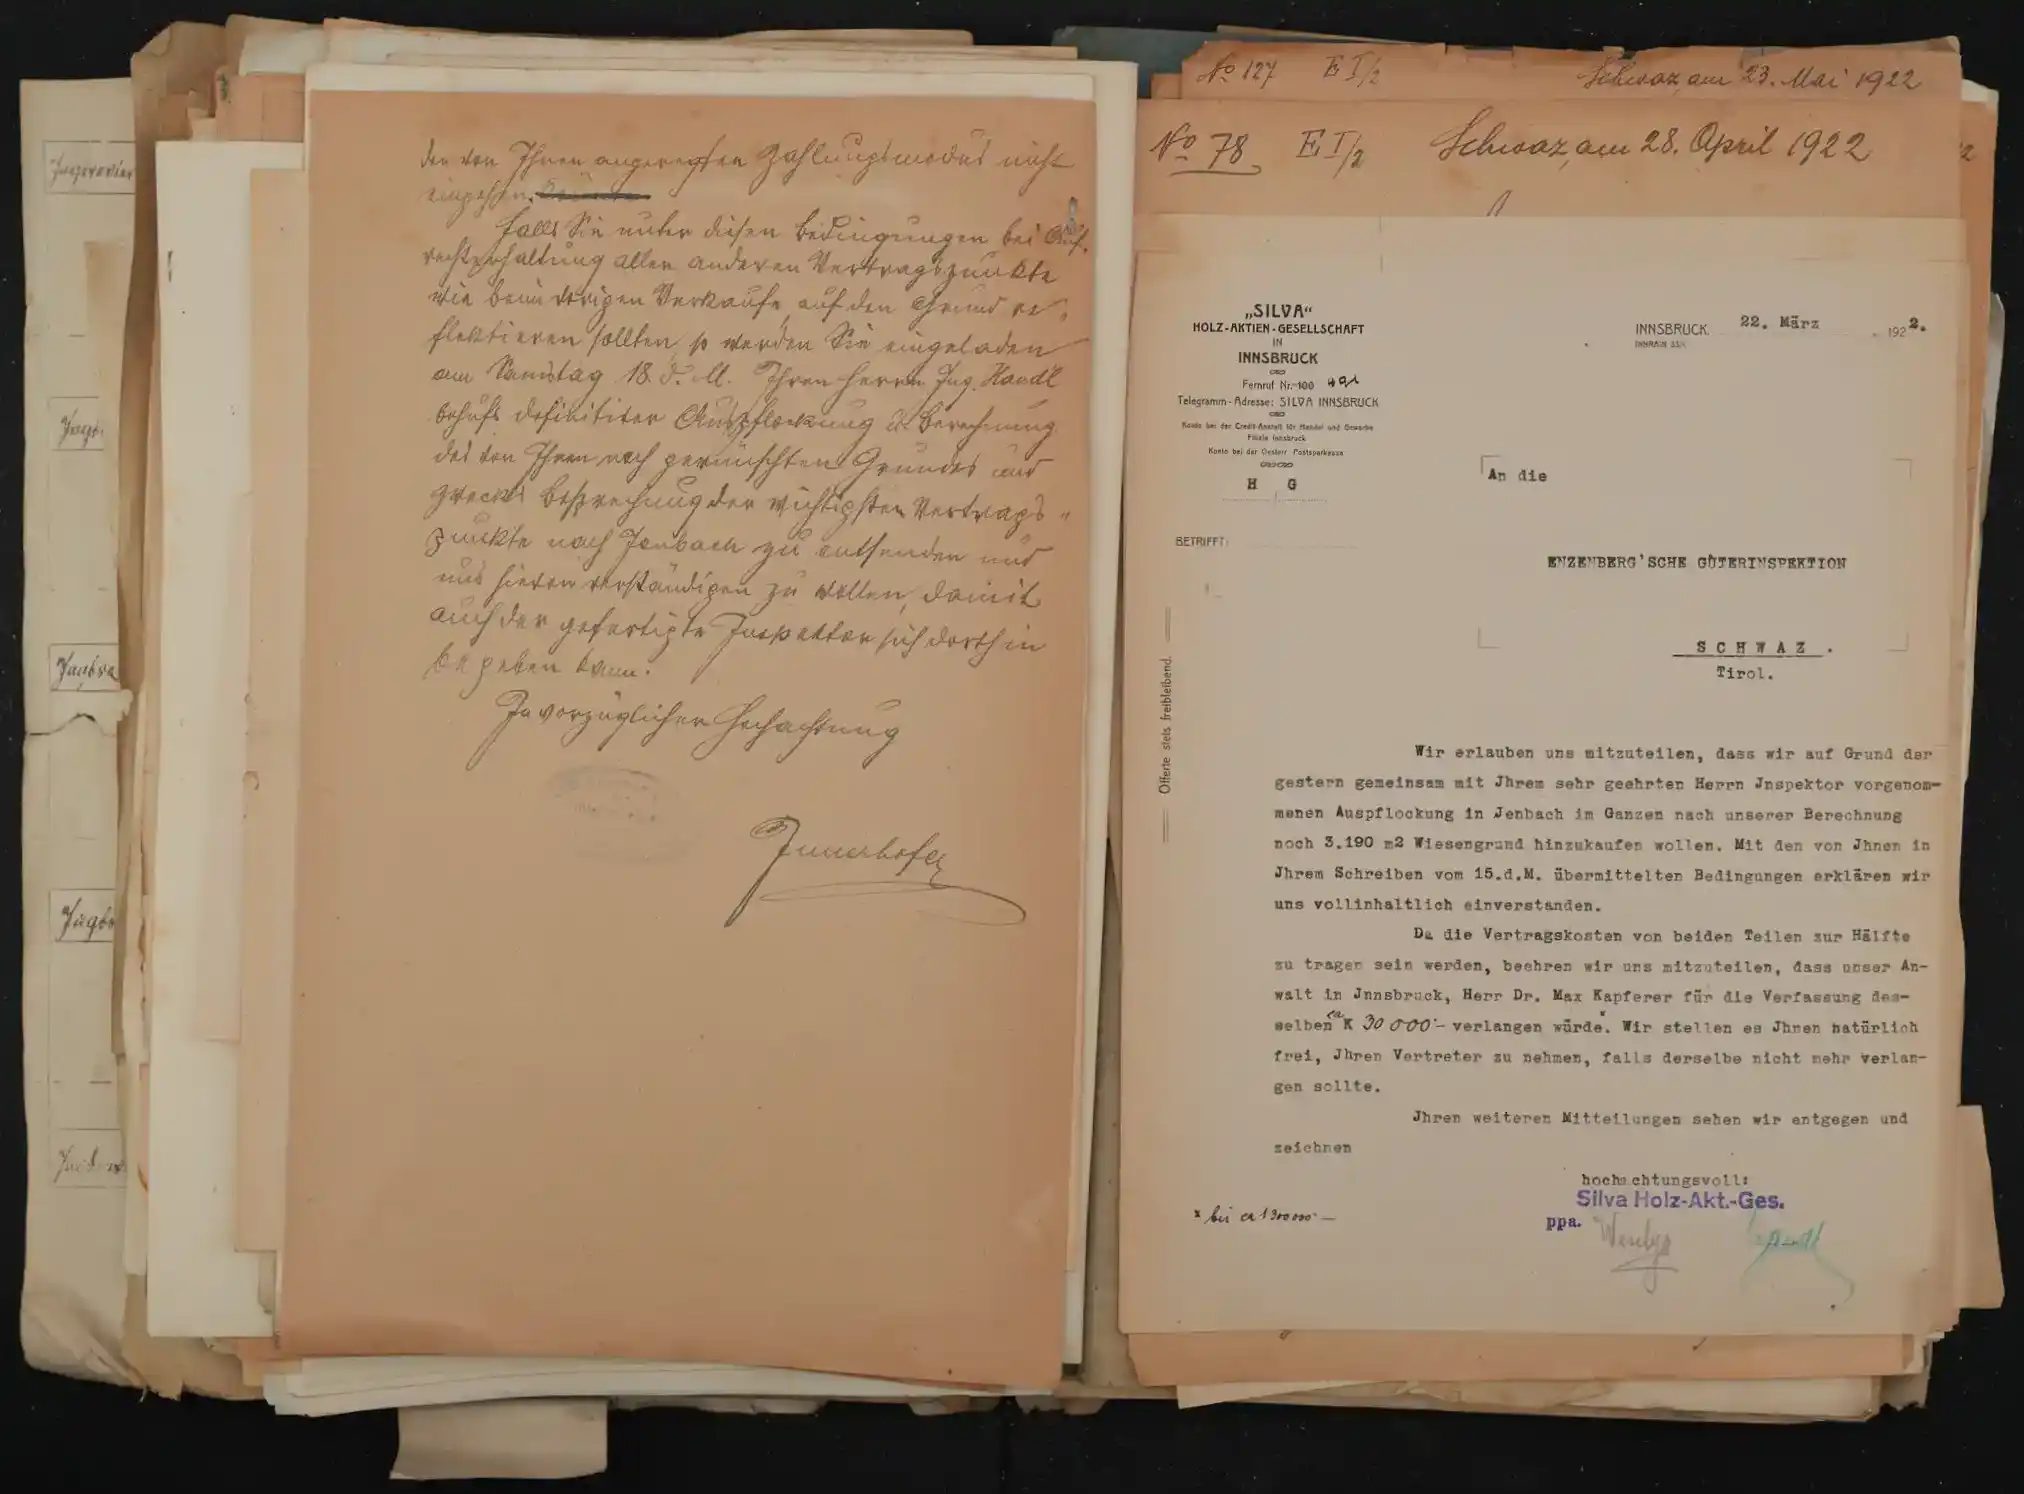 den von Ihnen angeregten Zahlungsmodus nicht
eingehen.
Falls Sie unter diesen Bedingungen bei Auf-
rechterhaltung aller anderen Vertragspunkte
wie beim vorigen Verkaufe auf den Grund re-
flektieren sollten, so werden Sie eingeladen
am Samstag 18. d. M. Ihren Herrn Ing. Handl
behufs definitiver Auspflockung u. Berechnung
des von Ihnen noch gewünschten Grundes und
zwecks Besprechung der wichtigsten Vertrags-
punkte nach Jenbach zu entsenden und
uns hievon verständigen zu wollen, damit
auch der gefertigte Inspektor sich dorthin
begeben kann.
In vorzüglicher Hochachtung
Innerhofer
No 127 E I/2 Schwaz, am 23. Mai 1922
No 78 E I/2 Schwaz, am 28. April 1922
„SILVA“
HOLZ-AKTIEN-GESELLSCHAFT
IN
INNSBRUCK
Fernruf Nr. 100
Telegramm-Adresse: SILVA INNSBRUCK
Konto bei der Credit-Anstalt für Handel und Gewerbe
Filiale Innsbruck
Konto bei der Oesterr Postsparkasse
H G
BETRIFFT:
INNSBRUCK, 22. März 1922.
An die
ENZENBERG'SCHE GÜTERINSPEKTION
SCHWAZ.
Tirol.
Offerte stets freibleibend.
Wir erlauben uns mitzuteilen, dass wir auf Grund der
gestern gemeinsam mit Jhrem sehr geehrten Herrn Jnspektor vorgenom-
menen Auspflockung in Jenbach im Ganzen nach unserer Berechnung
noch 3.190 m2 Wiesengrund hinzukaufen wollen. Mit den von Jhnen in
Jhrem Schreiben vom 15.d.M. übermittelten Bedingungen erklären wir
uns vollinhaltlich einverstanden.
Da die Vertragskosten von beiden Teilen zur Hälfte
zu tragen sein werden, beehren wir uns mitzuteilen, dass unser An-
walt in Jnnsbruck, Herr Dr. Max Kapferer für die Verfassung des-
selben ca K 30 000.- verlangen würde.x Wir stellen es Jhnen natürlich
frei, Jhren Vertreter zu nehmen, falls derselbe nicht mehr verlan-
gen sollte.
Jhren weiteren Mitteilungen sehen wir entgegen und
zeichnen
hochachtungsvoll:
Silva Holz-Akt.-Ges.
ppa.
x bis ca